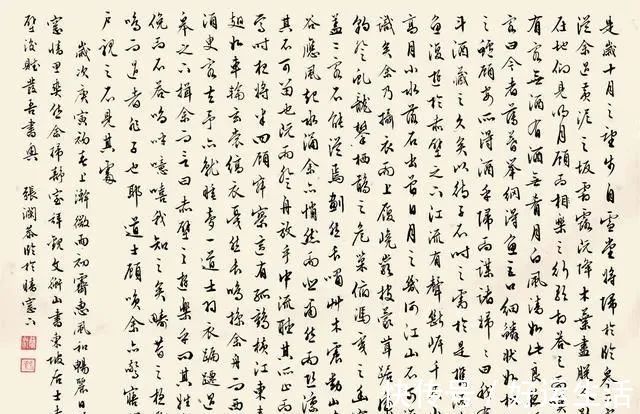 是歲十月之望步自雪堂將歸於臨
從余過黃泥之坂霜露既降木葉盡脫
在地仰見明月顧而相樂之行歌相答
有客無酒有酒無肴月白風清如此良
客曰今者薄暮舉網得魚巨口細鱗狀如松
之鱸顧安所得酒乎歸而謀諸婦婦曰我
斗酒藏之久矣以待子不時之需於是攜
魚復遊於赤壁之下江流有聲斷岸千
高月小水落石出曾日月之幾何江山不
識矣余乃攝衣而上履巉巖披蒙茸踞
豹登虬龍攀棲鶻之危巢俯馮夷之幽
蓋二客不能從焉劃然長嘯艸木震動山
谷應風起水涌余亦悄然而悲肅然而恐
其不可留也反而登舟放乎中流聽其所止而
焉時夜將半四顧寂寥適有孤鶴橫江東
翅如車輪玄裳縞衣戛然長鳴掠余舟而
須臾客去予亦就睡夢一道士羽衣蹁躚過
皋之下揖余而言曰赤壁之遊樂乎問其姓
俛而不答嗚呼噫嘻我知之矣疇昔之夜
鳴而過者非子也耶道士顧笑余亦驚寤
戶視之不見其處
歲次庚寅初春上澣微雨初霽惠風和暢麗日
窗情思奕然余掃靜室拜觀文衡山書東坡居士
壁後賦發吾書興 張瀾恭臨於晴窗下
快传号